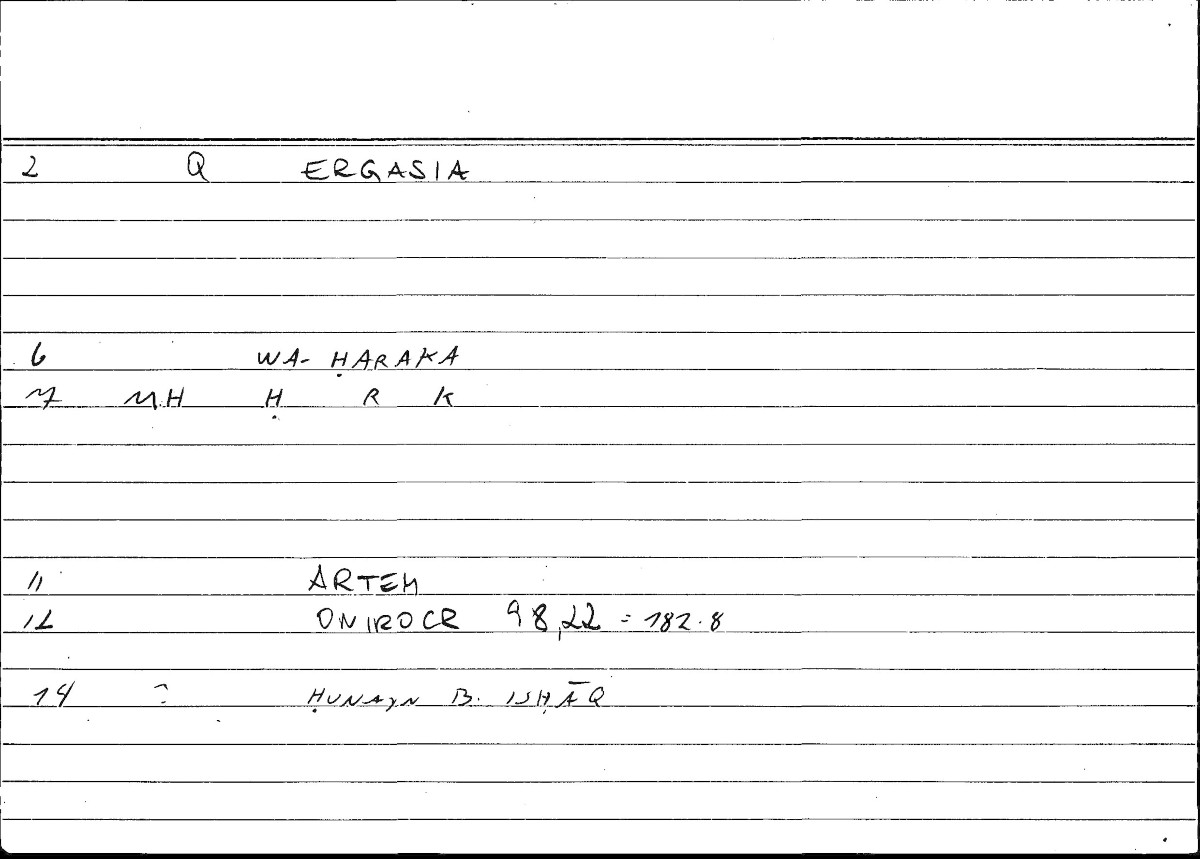 2 Q ERGASIA
6 WA- ḤARAKA
7 MH Ḥ R K
11 ARTEM
12 ONIROCR 98,22 = 182.8
14 ? ḤUNAYN B. ISḤĀQ